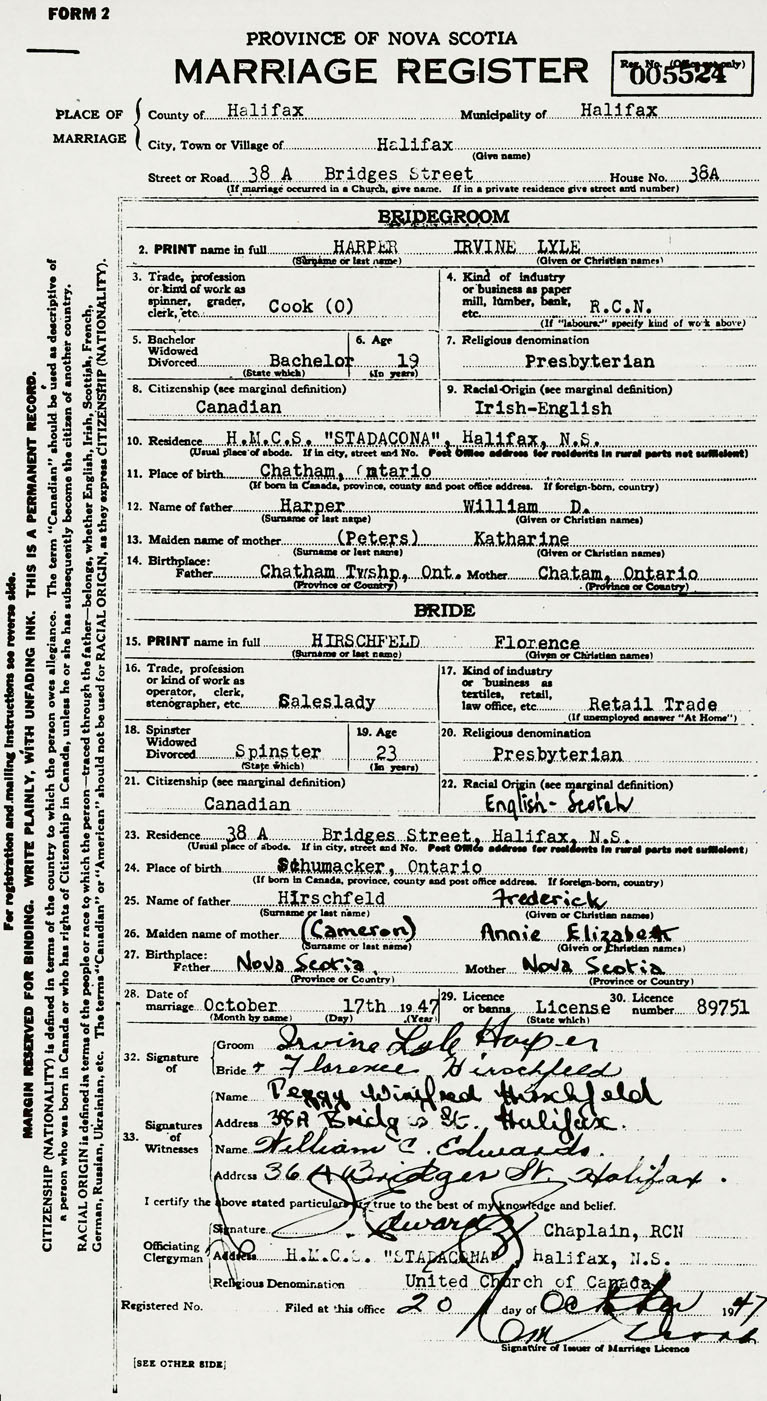 FORM 2
PROVINCE OF NOVA SCOTIA
MARRIAGE REGISTER
Reg. No. (Office use only)
005524
PLACE OF MARRIAGE
County of Halifax Municipality of Halifax
City, Town or Village of Halifax
(Give name)
Street or Road 38 A Bridges Street House No. 38A
(If marriage occurred in a Church, give name. If in a private residence give street and number)
BRIDEGROOM
2. PRINT name in full HARPER IRVINE LYLE
(Surname or last name) (Given or Christian names)
3. Trade, profession or kind of work as spinner, grader, clerk, etc. Cook (O)
4. Kind of industry or business as paper mill, lumber, bank, etc. R.C.N.
(If "labourer" specify kind of work above)
5. Bachelor Widowed Divorced Bachelor
(State which)
6. Age 19
(In years)
7. Religious denomination
Presbyterian
8. Citizenship (see marginal definition)
Canadian
9. Racial Origin (see marginal definition)
Irish-English
10. Residence H.M.C.S. "STADACONA", Halifax, N.S.
(Usual place of abode. If in city, street and No. Post Office address for residents in rural parts not sufficient)
11. Place of birth Chatham, Ontario
(If born in Canada, province, county and post office address. If foreign-born, country)
12. Name of father Harper William D.
(Surname or last name) (Given or Christian names)
13. Maiden name of mother (Peters) Katharine
(Surname or last name) (Given or Christian names)
14. Birthplace:
Father Chatham Twshp, Ont. Mother Chatam, Ontario
(Province or Country) (Province or Country)
BRIDE
15. PRINT name in full HIRSCHFELD Florence
(Surname or last name) (Given or Christian names)
16. Trade, profession or kind of work as operator, clerk, stenographer, etc. Saleslady
17. Kind of industry or business as textiles, retail, law office, etc. Retail Trade
(If unemployed answer "At Home")
18. Spinster Widowed Divorced Spinster
(State which)
19. Age 23
(In years)
20. Religious denomination
Presbyterian
21. Citizenship (see marginal definition)
Canadian
22. Racial Origin (see marginal definition)
English-Scotch
23. Residence 38 A Bridges Street, Halifax, N.S.
(Usual place of abode. If in city, street and No. Post Office address for residents in rural parts not sufficient)
24. Place of birth Schumacker, Ontario
(If born in Canada, province, county and post office address. If foreign-born, country)
25. Name of father Hirschfeld Frederick
(Surname or last name) (Given or Christian names)
26. Maiden name of mother (Cameron) Annie Elizabeth
(Surname or last name) (Given or Christian names)
27. Birthplace:
Father Nova Scotia Mother Nova Scotia
(Province or Country) (Province or Country)
28. Date of marriage October 17th 1947
(Month by name) (Day) (Year)
29. Licence or banns License
(State which)
30. Licence number 89751
32. Signature of
Groom Irvine Lyle Harper
Bride + Florence Hirschfeld
33. Signatures of Witnesses
Name Peggy Winifred Hirschfeld
Address 38A Bridges St. Halifax.
Name William C. Edwards.
Address 36 A Bridges St. Halifax.
I certify the above stated particulars are true to the best of my knowledge and belief.
Officiating Clergyman
Signature Edwards Chaplain, RCN
Address H.M.C.S. "STADACONA" Halifax, N.S.
Religious Denomination United Church of Canada
Registered No. Filed at this office 20 day of October 1947
Signature of Issuer of Marriage Licence
[SEE OTHER SIDE]
For registration and mailing instructions see reverse side.
MARGIN RESERVED FOR BINDING. WRITE PLAINLY, WITH UNFADING INK. THIS IS A PERMANENT RECORD.
CITIZENSHIP (NATIONALITY) is defined in terms of the country to which the person owes allegiance. The term "Canadian" should be used as descriptive of
a person who was born in Canada or who has rights of Citizenship in Canada, unless he or she has subsequently become the citizen of another country.
RACIAL ORIGIN is defined in terms of the people or race to which the person—traced through the father—belongs, whether English, Irish, Scottish, French,
German, Russian, Ukrainian, etc. The terms "Canadian" or "American" should not be used for RACIAL ORIGIN, as they express CITIZENSHIP (NATIONALITY).